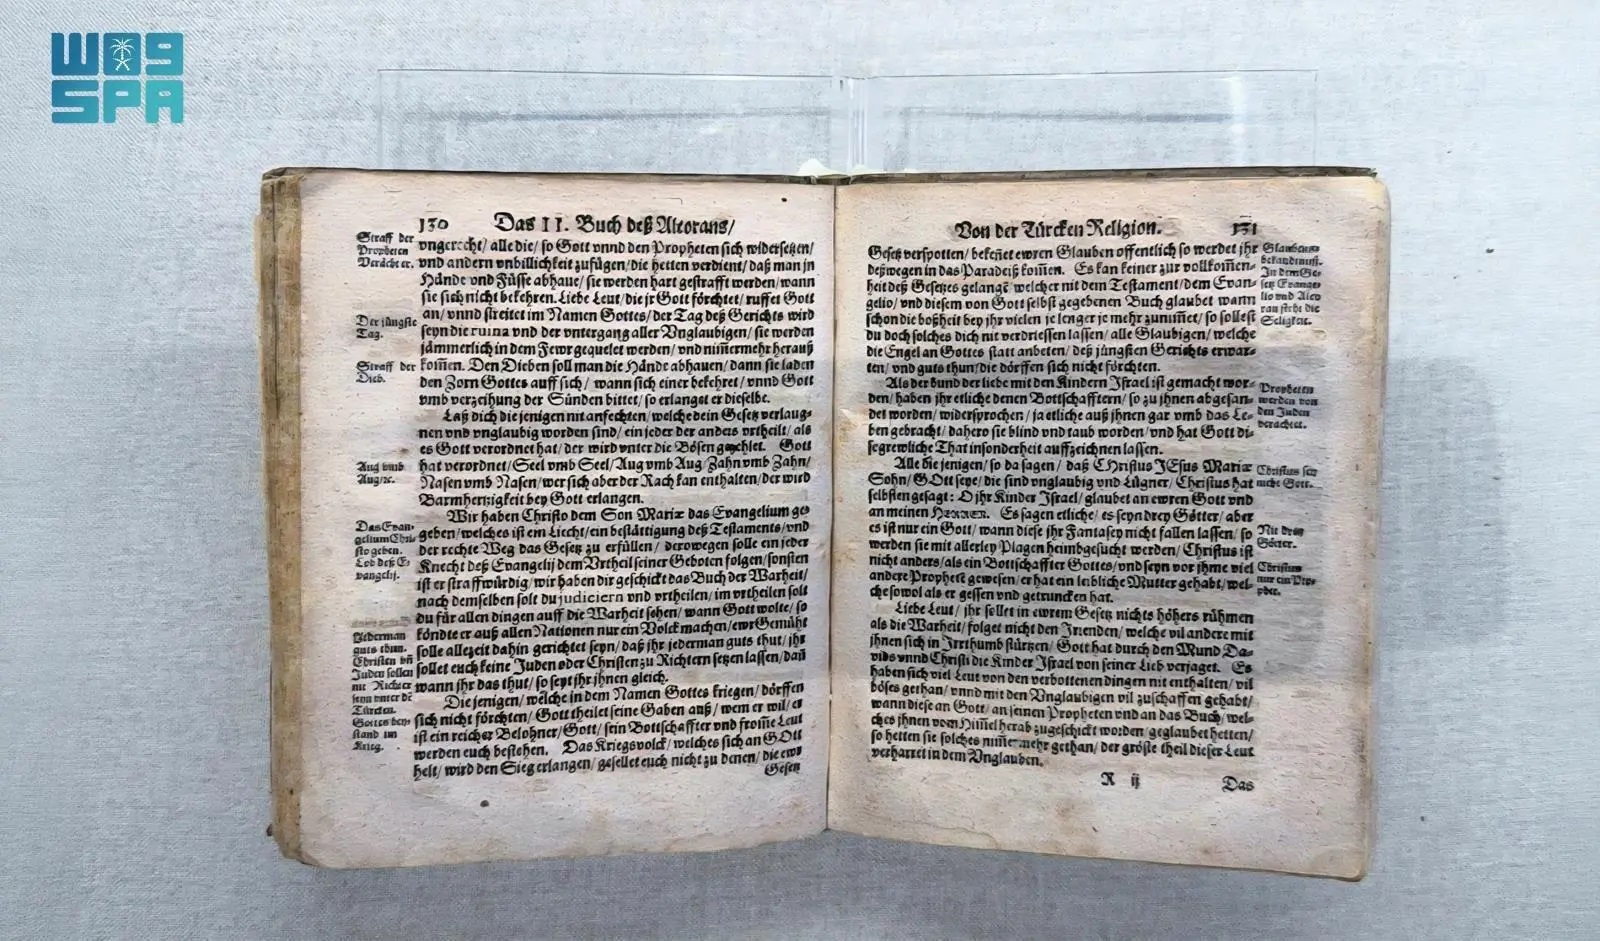 واس
SPA
130 Das II. Buch deß Alcorans/
Straff der
Propheten
Verächter.
vngerecht/ alle die/ so Gott vnnd den Propheten sich widersetzen/
vnd andern vnbillichkeit zufügen/ die hetten verdient/ daß man jn
Hände vnd Füsse abhaue/ sie werden hart gestrafft werden/ wann
sie sich nicht bekehren. Liebe Leut/ die jr Gott förchtet/ ruffet Gott
Der jüngste
Tag.
an/ vnnd streitet im Namen Gottes/ der Tag deß Gerichts wird
seyn die ruina vnd der vntergang aller Vnglaubigen/ sie werden
jämmerlich in dem Fewr gequelet werden/ vnd nim̃ermehr herauß
Straff der
Dieb.
kom̃en. Den Dieben soll man die Hände abhauen/ dann sie laden
den Zorn Gottes auff sich/ wann sich einer bekehret/ vnnd Gott
vmb verzeihung der Sünden bittet/ so erlanget er dieselbe.
Laß dich die jenigen nit anfechten/ welche dein Gesetz verlaug-
nen vnd vnglaubig worden sind/ ein jeder der anders vrtheilt/ als
es Gott verordnet hat/ der wird vnter die Bösen gezehlet. Gott
Aug vmb
Aug/ꝛc.
hat verordnet/ Seel vmb Seel/ Aug vmb Aug/ Zahn vmb Zahn/
Nasen vmb Nasen/ wer sich aber der Rach kan enthalten/ der wird
Barmhertzigkeit bey Gott erlangen.
Wir haben Christo dem Son Mariæ das Evangelium ge-
Das Evan-
gelium Chri-
sto geben.
Lob deß E-
vangelij.
geben/ welches ist ein Liecht/ ein bestättigung deß Testaments/ vnd
der rechte Weg das Gesetz zu erfüllen/ derowegen solle ein jeder
Knecht deß Evangelij dem Vrtheil seiner Geboten folgen/ sonsten
ist er straffwürdig/ wir haben dir geschickt das Buch der Warheit/
nach demselben solt du judiciern vnd vrtheilen/ im vrtheilen solt
du für allen dingen auff die Warheit sehen/ wann Gott wolte/ so
Jederman
guts thun.
Christen vñ
Juden sollen
nit Richter
seyn vnter dẽ
Türcken.
Gottes bey-
stand im
Krieg.
köndte er auß allen Nationen nur ein Volck machen/ ewr Gemüht
solle allezeit dahin gerichtet seyn/ daß jhr jederman guts thut/ jhr
sollet euch keine Juden oder Christen zu Richtern setzen lassen/ dañ
wann jhr das thut/ so seyt jhr jhnen gleich.
Die jenigen/ welche in dem Namen Gottes kriegen/ dörffen
sich nicht förchten/ Gott theilet seine Gaben auß/ wem er wil/ er
ist ein reicher Belohner/ Gott/ sein Bottschaffter vnd from̃e Leut
werden euch bestehen. Das Kriegsvolck/ welches sich an GOtt
helt/ wird den Sieg erlangen/ gesellet euch nicht zu denen/ die ewr
Gesetz
Von der Türcken Religion. 131
Gesetz verspotten/ bekeñet ewren Glauben offentlich so werdet jhr
deßwegen in das Paradeiß kom̃en. Es kan keiner zur vollkom̃en-
heit deß Gesetzes gelangẽ/ welcher nit dem Testament/ dem Evan-
gelio/ vnd diesem von Gott selbst gegebenen Buch glaubet wann
schon die boßheit bey jhr vielen je lenger je mehr zunim̃et/ so sollest
Glaubens-
bekandtnuß.
In dem Ge-
setz Evange-
lio vnd Alco
ran steht die
Seligkeit.
du doch solches dich nit verdriessen lassen/ alle Glaubigen/ welche
die Engel an Gottes statt anbeten/ deß jüngsten Gerichts erwar-
ten/ vnd guts thun/ die dörffen sich nicht förchten.
Als der bund der liebe mit den Kindern Israel ist gemacht wor-
den/ haben jhr etliche denen Bottschafftern/ so zu jhnen abgesan-
det worden/ widersprochen/ ja etliche auß jhnen gar vmb das Le-
ben gebracht/ dahero sie blind vnd taub worden/ vnd hat Gott di-
se grewliche That insonderheit auffzeichnen lassen.
Propheten
werden von
den Juden
verachtet.
Alle die jenigen/ so da sagen/ daß CHristus JEsus Mariæ
Sohn/ GOtt seye/ die sind vnglaubig vnd Lügner/ Christus hat
selbsten gesagt: O jhr Kinder Israel/ glaubet an ewren Gott vnd
an meinen HERREN. Es sagen etliche/ es seyn drey Götter/ aber
Christus sey
nicht Gott.
es ist nur ein Gott/ wann diese jhr Fantasey nicht fallen lassen/ so
werden sie mit allerley Plagen heimbgesucht werden/ Christus ist
nicht anders/ als ein Bottschaffter Gottes/ vnd seyn vor jhme viel
andere Prophetẽ gewesen/ er hat ein leibliche Mutter gehabt/ wel-
che sowol als er gessen vnd getruncken hat.
Nit drey
Götter.
Christus
nur ein Pro-
phet.
Liebe Leut/ jhr sollet in ewrem Gesetz nichts höhers rühmen
als die Warheit/ folget nicht den Irrenden/ welche vil andere mit
jhnen sich in Irrthumb stürtzen/ Gott hat durch den Mund Da-
vids vnnd Christi die Kinder Israel von seiner Lieb verjaget. Es
haben sich viel Leut von den verbottenen dingen nit enthalten/ vil
böses gethan/ vnnd mit den Vnglaubigen vil zuschaffen gehabt/
wann diese an Gott/ an seinen Propheten vnd an das Buch/ wel-
ches jhnen vom Him̃el herab zugeschickt worden/ geglaubet hetten/
so hetten sie solches nim̃ermehr gethan/ der gröste theil dieser Leut
verharret in dem Vnglauben.
R ij Das